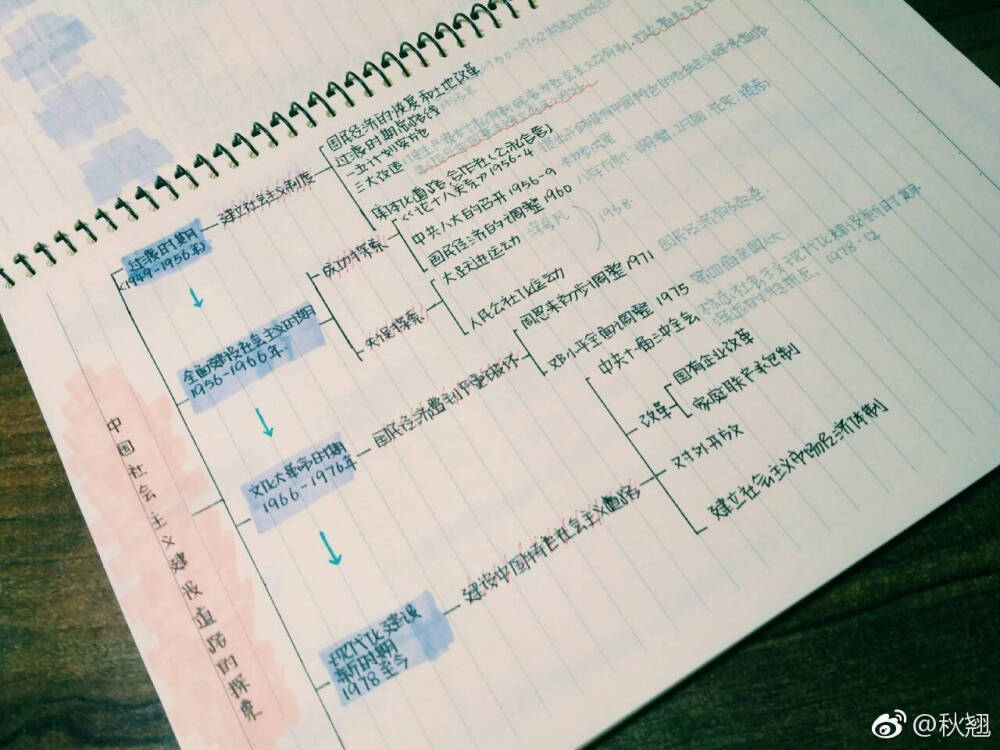 中国社会主义建设道路的探索
过度时期
(1949-1956年)
建立社会主义制度
国民经济的恢复和土地改革
过度时期总路线
一五计划实施
三大改造
全面建设社会主义时期
1956-1966年.
成功探索
《论十大关系》1956-4
中共八大的召开 1956-9
国民经济的调整 1960
失误探索
大跃进运动
1958.
人民公社化运动
文化大革命时期
1966-1976年
国民经济遭到严重破坏
周恩来初步调整 1971
邓小平全面调整 1975
现代化建设
新时期
1978至今
建设中国特色社会主义道路
中共十一届三中全会
1978-12
改革
国有企业改革
家庭联产承包制
对外开放
建立社会主义市场经济体制
@秋翘